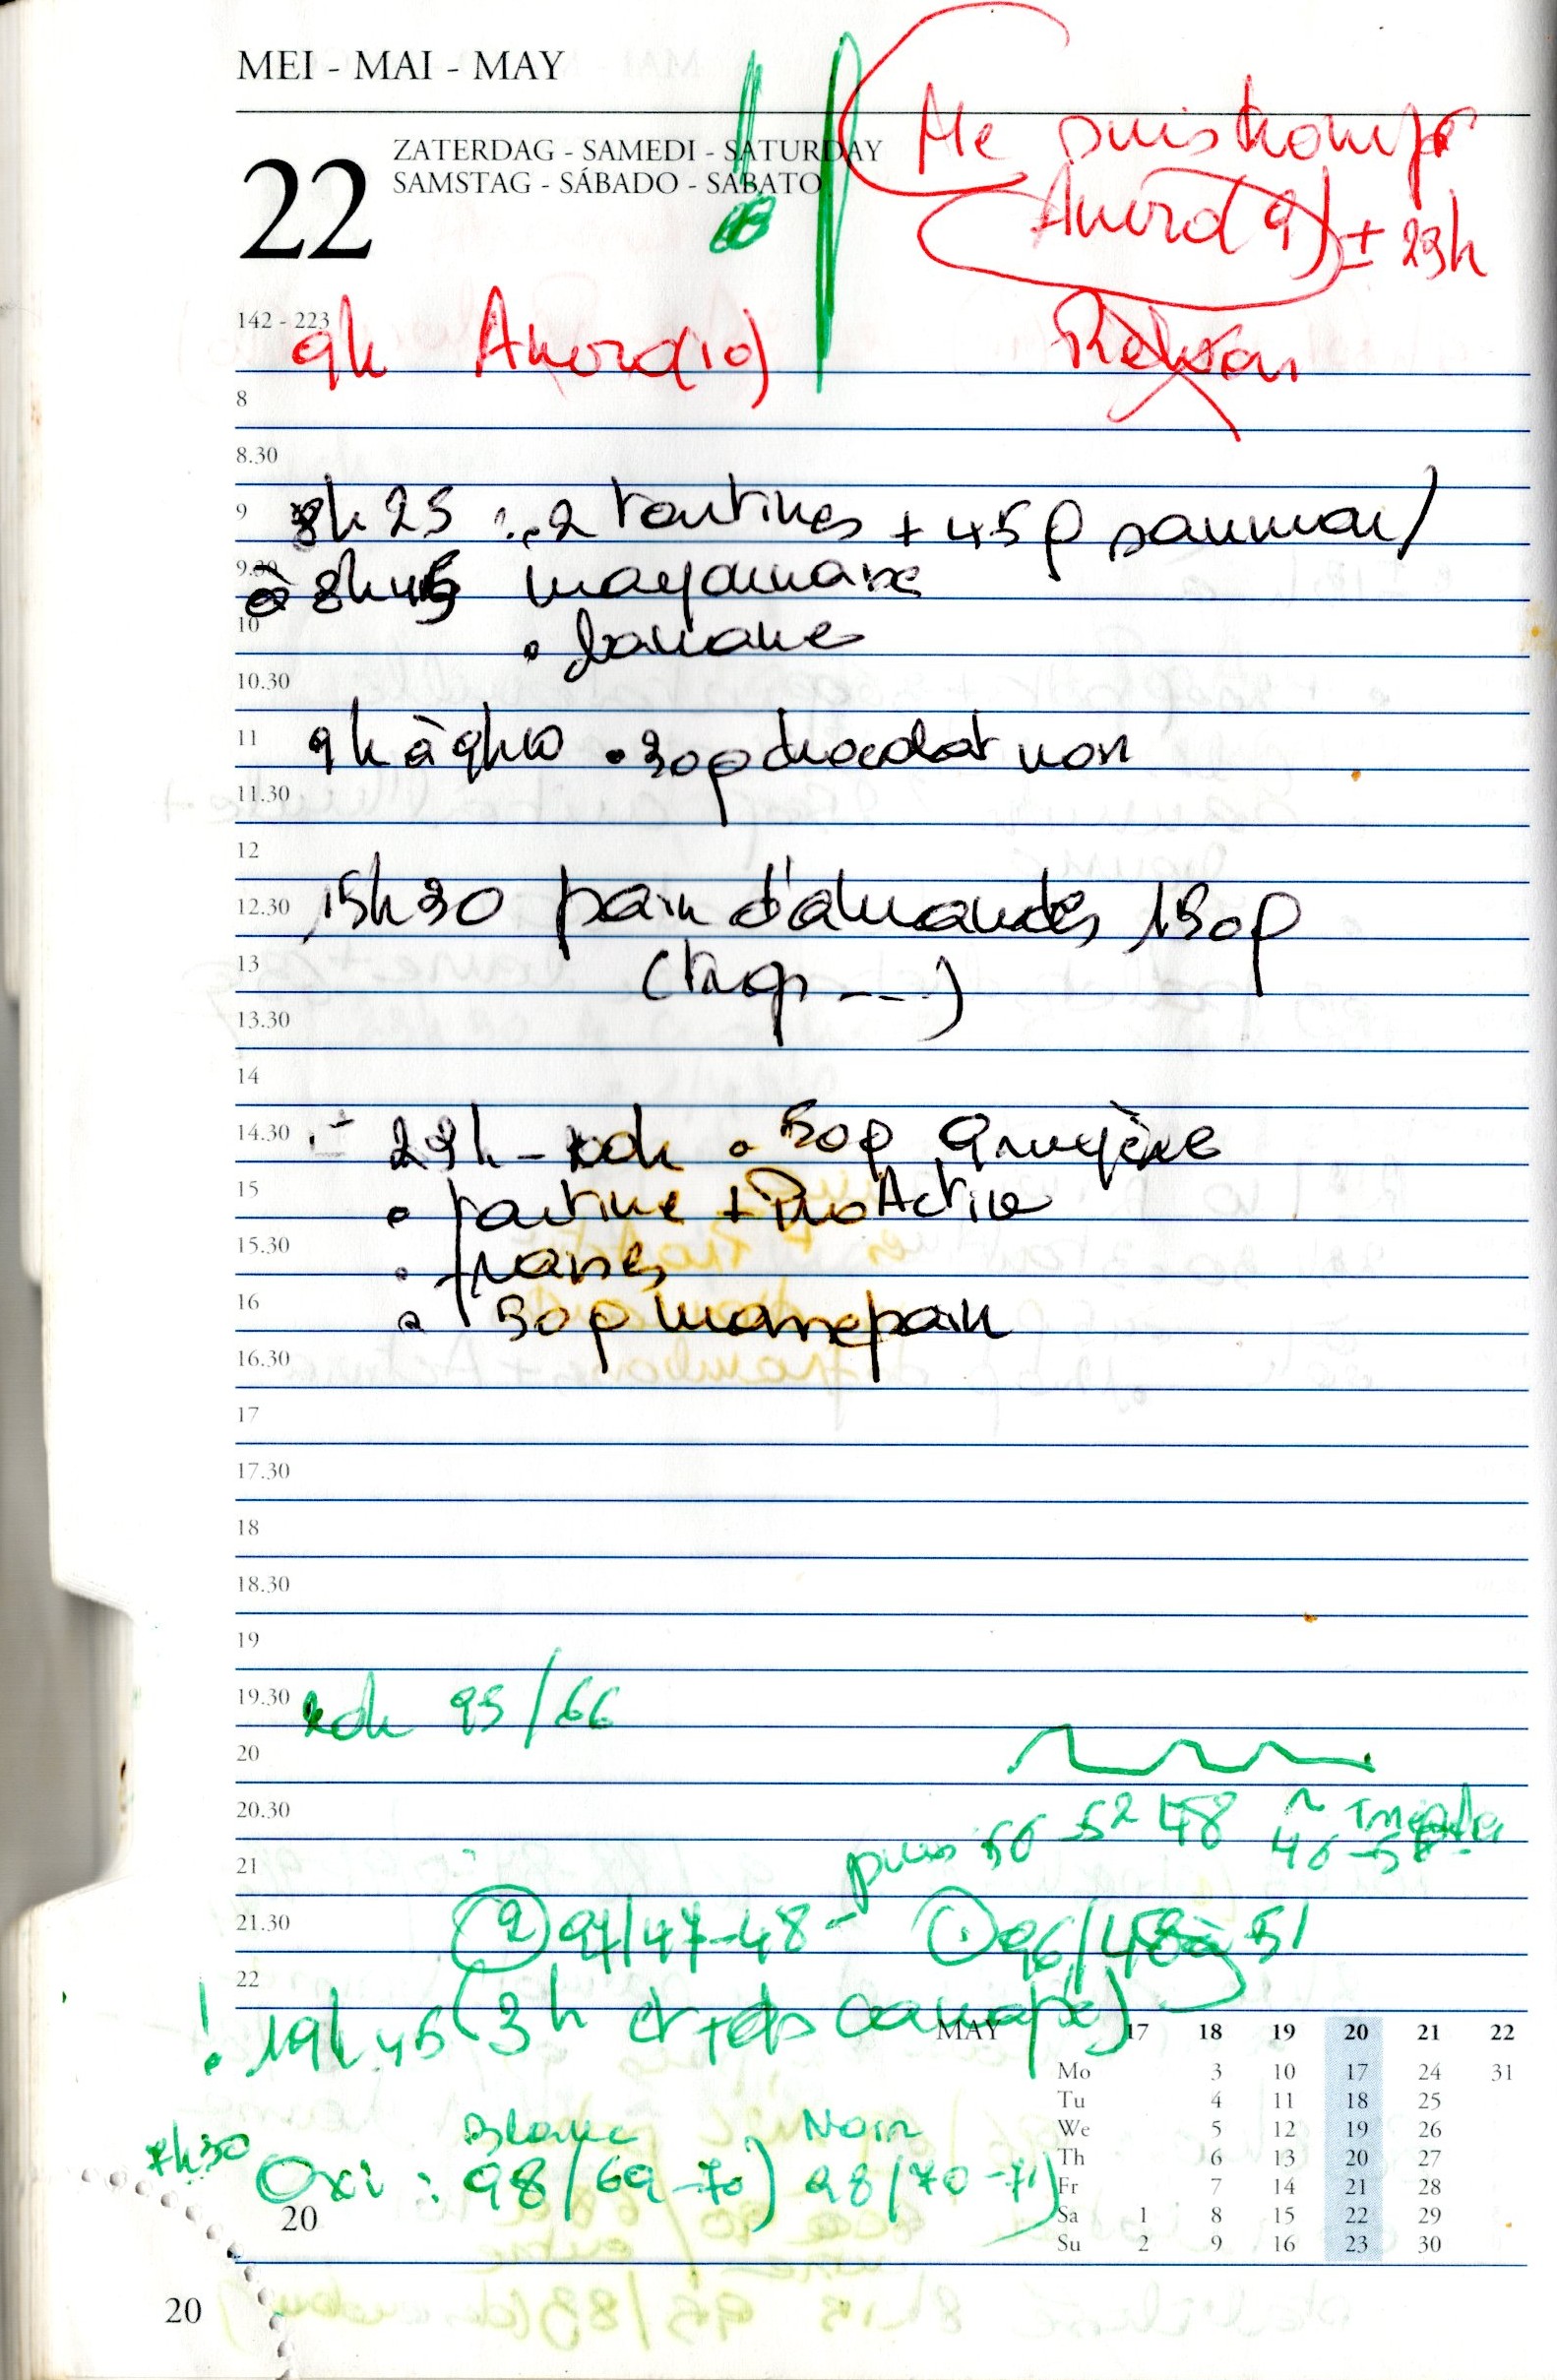 MEI - MAI - MAY
22
ZATERDAG - SAMEDI - SATURDAY
SAMSTAG - SÁBADO - SABATO
Me suis trompé
± 23h
142 - 223
9h
8
8.30
9 8h25 : 2 tartines + 45 p saumon /
9.30 à 8h45 mayonnaise
10 • banane
10.30
11 9h à 9h10 • 30 p chocolat noir
11.30
12
12.30 15h30 pain d'amandes 150p
13 (trop ---)
13.30
14
14.30 23h - • 50p gruyère
15 • tartine + ProActive
15.30 • fraises
16 • 50p massepain
16.30
17
17.30
18
18.30
19
19.30 95/66
20
20.30
puis 50 - 52 48 ~
46 - 
21
21.30 ② 97/47-48 - ① 96/48 à 51
22
! 19h45 (3h canapé)
MAY 17 18 19 20 21 22
Mo 3 10 17 24 31
Tu 4 11 18 25
We 5 12 19 26
Th 6 13 20 27
Fr 7 14 21 28
Sa 1 8 15 22 29
Su 2 9 16 23 30
Blanc Noir
7h30 Oxi : 98/69-70) 98/70-71)
20
20